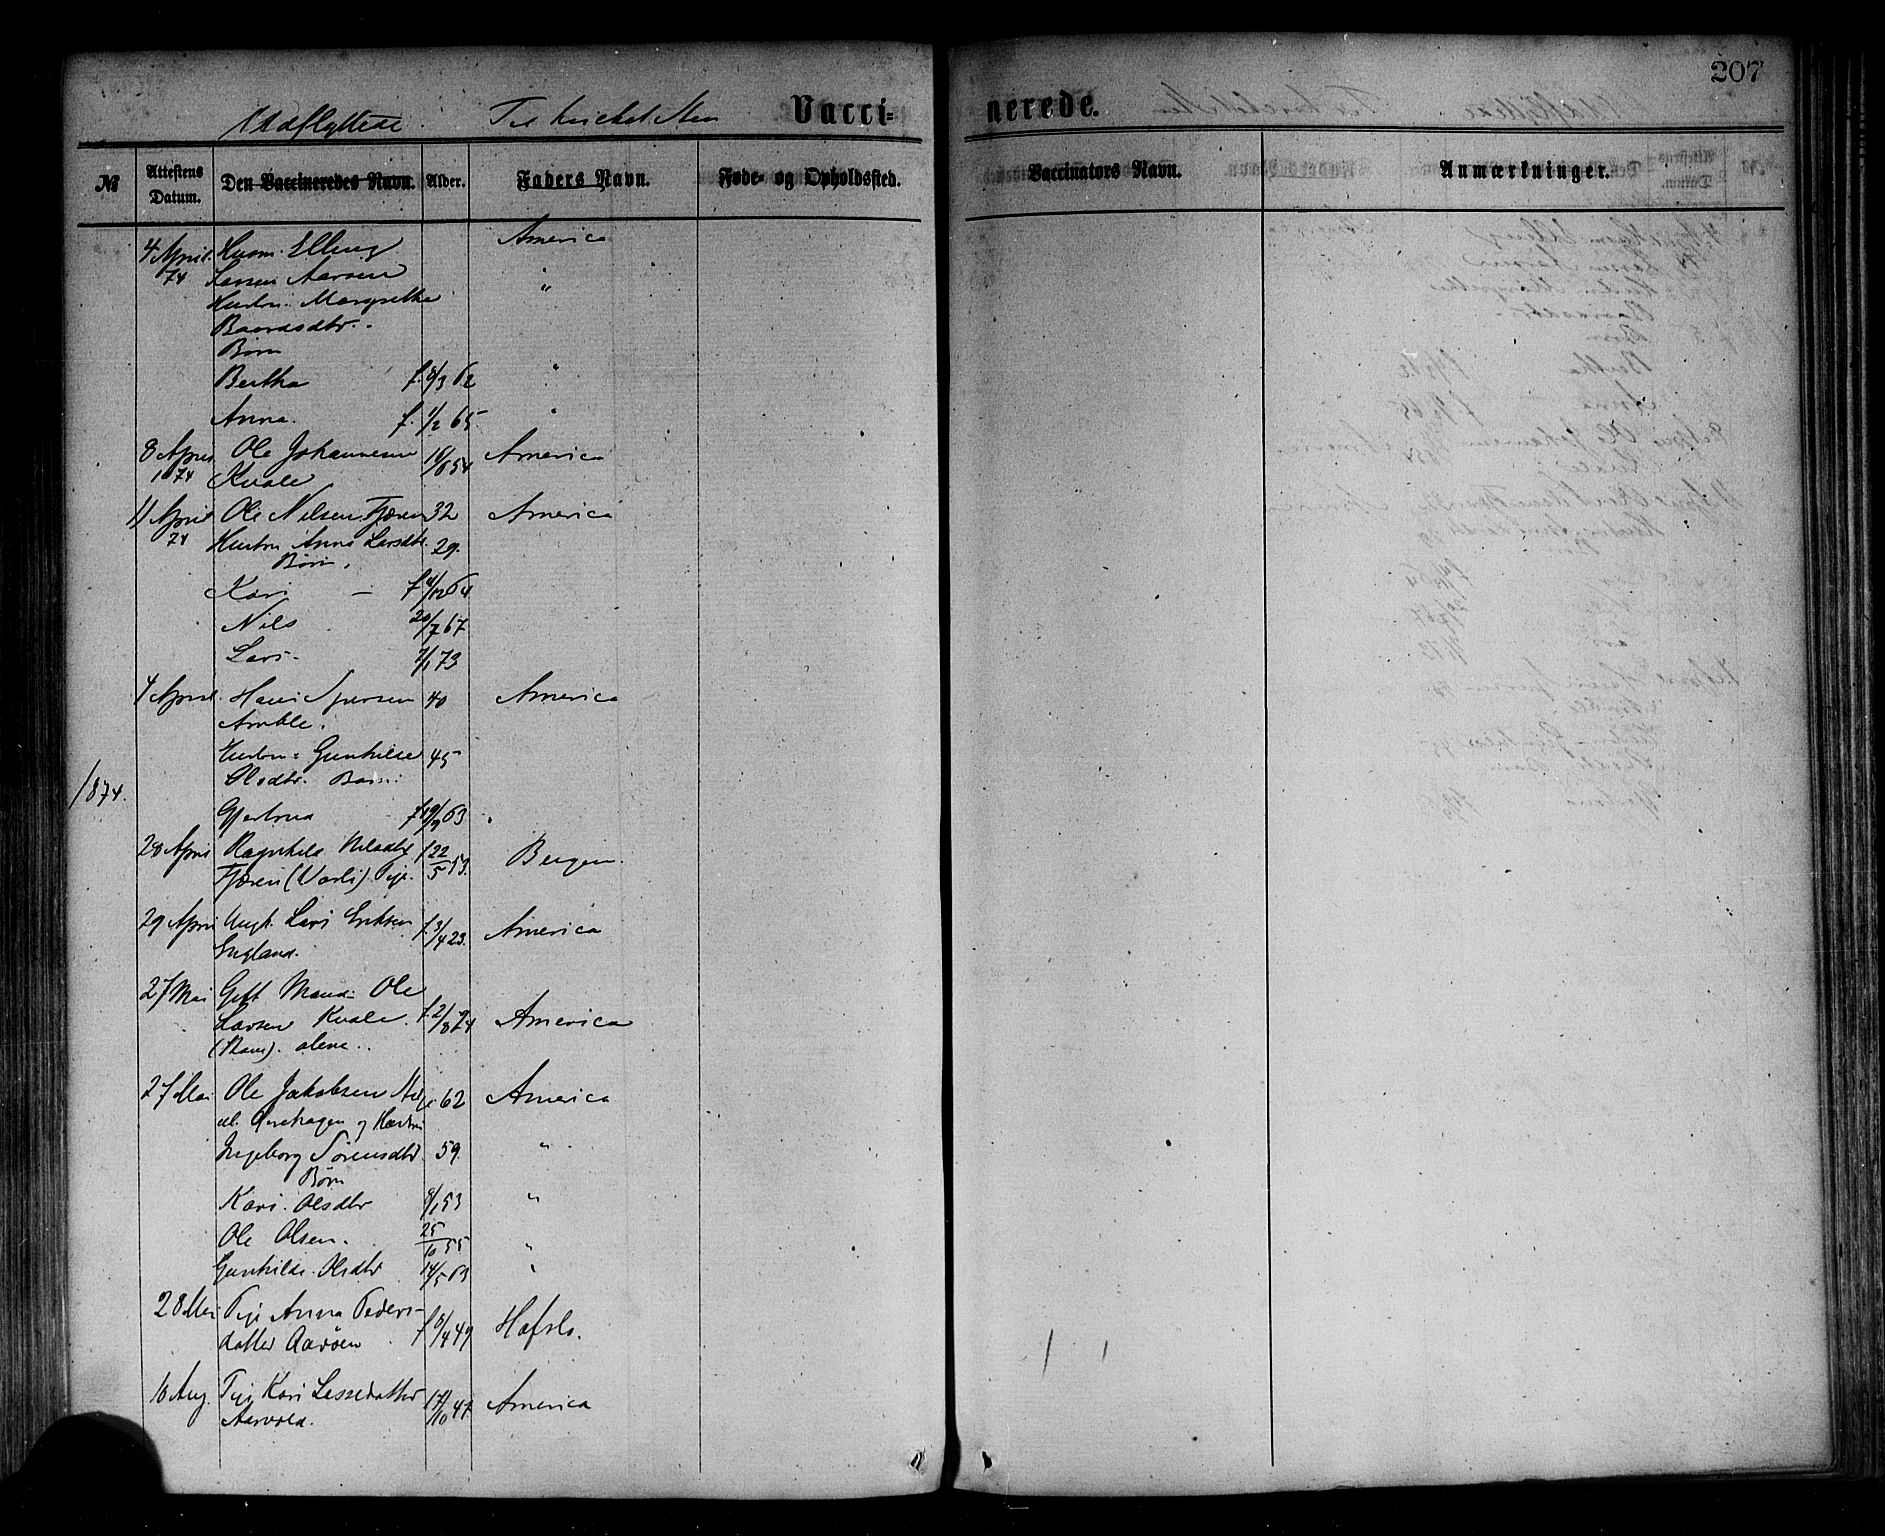 207
Udflyttede. Til hvilket Sted
Vacci-
nerede.
№
Attestens Datum.
Den Vaccineredes Navn.
Alder.
Faders Navn.
Føde- og Opholdssted.
Vaccinators Navn.
Anmærkninger.
4 April Husm. Elling America
74 Larsen Aarøen "
Hustru Margrethe
Baardsdtr.
Børn
Bertha f. 8/3 62 "
Anna. f. 1/2 65 "
8 April Ole Johannesen 18/8 54 America
1874 Kvale
11 April Ole Nilsen Fjæren 32 America
74 Hustru Anna Larsdtr. 29.
Børn.
Kari – f. 4/12 64
Nils 20/7 67
Lars 7/1 73
4 April. Hans Iversen 40 America
Amble.
Hustru Gunhilde 45
Olsdtr. Barn:
1874.
Gjertrud f 19/9 63
28 April Ragnhild Nilsdtr f 22/5 53. Bergen.
Fjæren (Varli) Pige
29 April Ungk. Lars Eriksen f. 3/4 23. America
England.
27 Mai Gift Mand Ole
Larsen Kvale. f. 2/8 24 America
alene.
27 Mai Ole Jakobsen 62 America
og Hustru
Ingeborg Sørensdtr 59. "
Børn
Kari Olsdtr 8/1 53 "
Ole Olsen. 25/10 55 "
Gunhilde Olsdtr 14/5 63 "
28 Mai Pige Anna Peders-
datter Aarøen f 8/4 49 Hafslo.
10 Aug. Pige Kari Lassedatter 17/10 47. America
Aarvold.